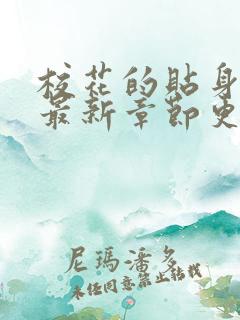 校花的貼身
最新章節更
尼瑪潘多
未经同意禁止转载